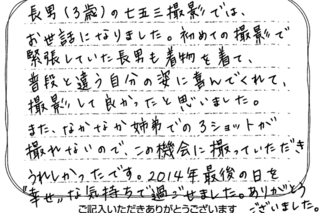 長男(3歳)の七五三撮影では、
お世話になりました。初めての撮影で
緊張していた長男も着物を着て、
普段と違う自分の姿に喜んでくれて、
撮影して良かったと思いました。
また、なかなか姉弟での3ショットが
撮れないので、この機会に撮っていただき
うれしかったです。2014年最後の日を
"幸せ"な気持ちで過ごせました。ありがとう
ございました。
ご記入いただきありがとうございます